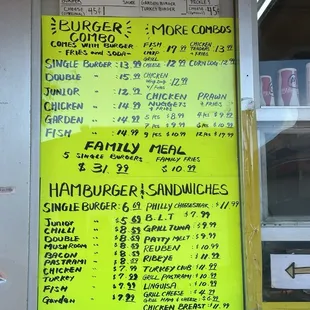 BURGER
COMBO
COMES WITH BURGER
- FRIES and SODA -
SINGLE BURGER : 13.99
DOUBLE : 15.99
JUNIOR : 12.99
CHICKEN : 14.99
GARDEN : 14.99
FISH : 14.99
MORE COMBOS
FISH 17.99
CHICKEN 13.99
CHEESE 12.99 CORN DOG 12.99
CHICKEN 17.99
CHICKEN PRAWN
NUGGETS
& FRIES & FRIES
FAMILY MEAL
5 SINGLE BURGERS FAMILY FRIES
$31.99 $10.99
HAMBURGER & SANDWICHES
SINGLE BURGER : 6.69
Junior : $5.69
CHILLI : $8.69
DOUBLE : $8.69
MUSHROOM : $8.69
BACON : $8.69
PASTRAMI : $8.69
CHICKEN : $7.99
TURKEY : $7.99
FISH : $7.99
Garden : $7.99
PHILLY CHEESESTEAK : $11.99
B.L.T : $7.99
GRILL TUNA : $9.99
PATTY MELT : $9.99
REUBEN : $10.99
RIBEYE : $11.99
TURKEY CLUB : $11.99
GRILL PASTRAMI : $10.99
LINGUISA : $10.99
GRILL CHEESE : $4.99
GRILL HAM & CHEESE : $6.99
CHICKEN BREAST : $11.99